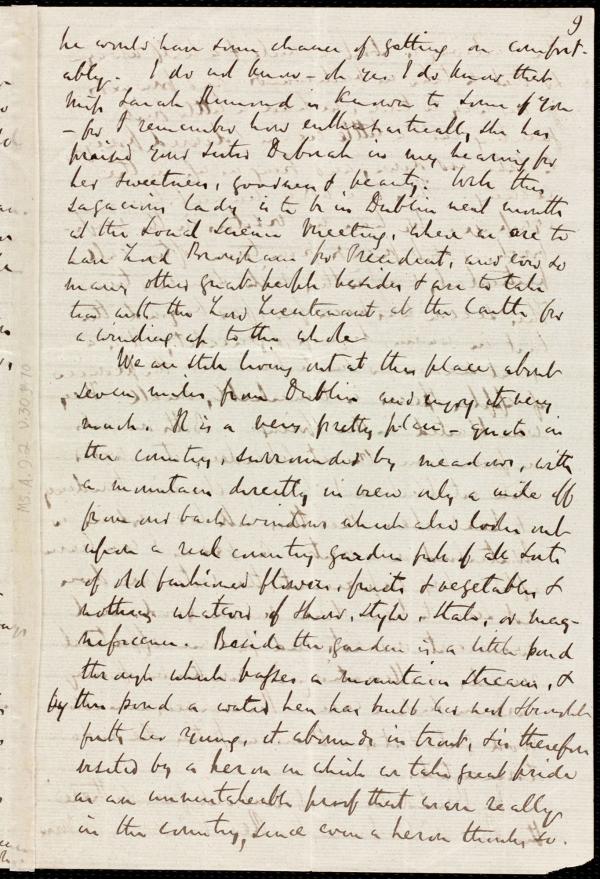 9
he would have some chance of getting on comfort-
ably. I do not know - oh yes I do know that
Miss Sarah Remond is known to some of you
- for I remember how enthusiastically she has
praised your sister Deborah in my hearing for
her sweetness, goodness & beauty. Well this
sagacious lady is to be in Dublin next month
at the Social Science Meeting, where we are to
have Lord Brougham for President, and ever so
many other great people besides & are to take
tea with the Lord Lieutenant at the Castle for
a winding up to the whole
We are still living out at this place about
seven miles from Dublin and enjoy it very
much. It is a very pretty place - quite in
the country, surrounded by meadows, with
a mountain directly in view only a mile off
from our back windows which also looks out
upon a real country garden full of all sorts
of old fashioned flowers, fruits & vegetables &
nothing whatever of show, style, state, or mag-
nificence. Beside the garden is a little pond
through which passes a mountain stream, &
by this pond a water hen has built her nest & brought
forth her young, it abounds in trout, & is therefore
visited by a heron in which we take great pride
as an unmistakeable proof that we are really
in the country, since even a heron thinks so.
Ms. A. 9.2 v. 30 p 70